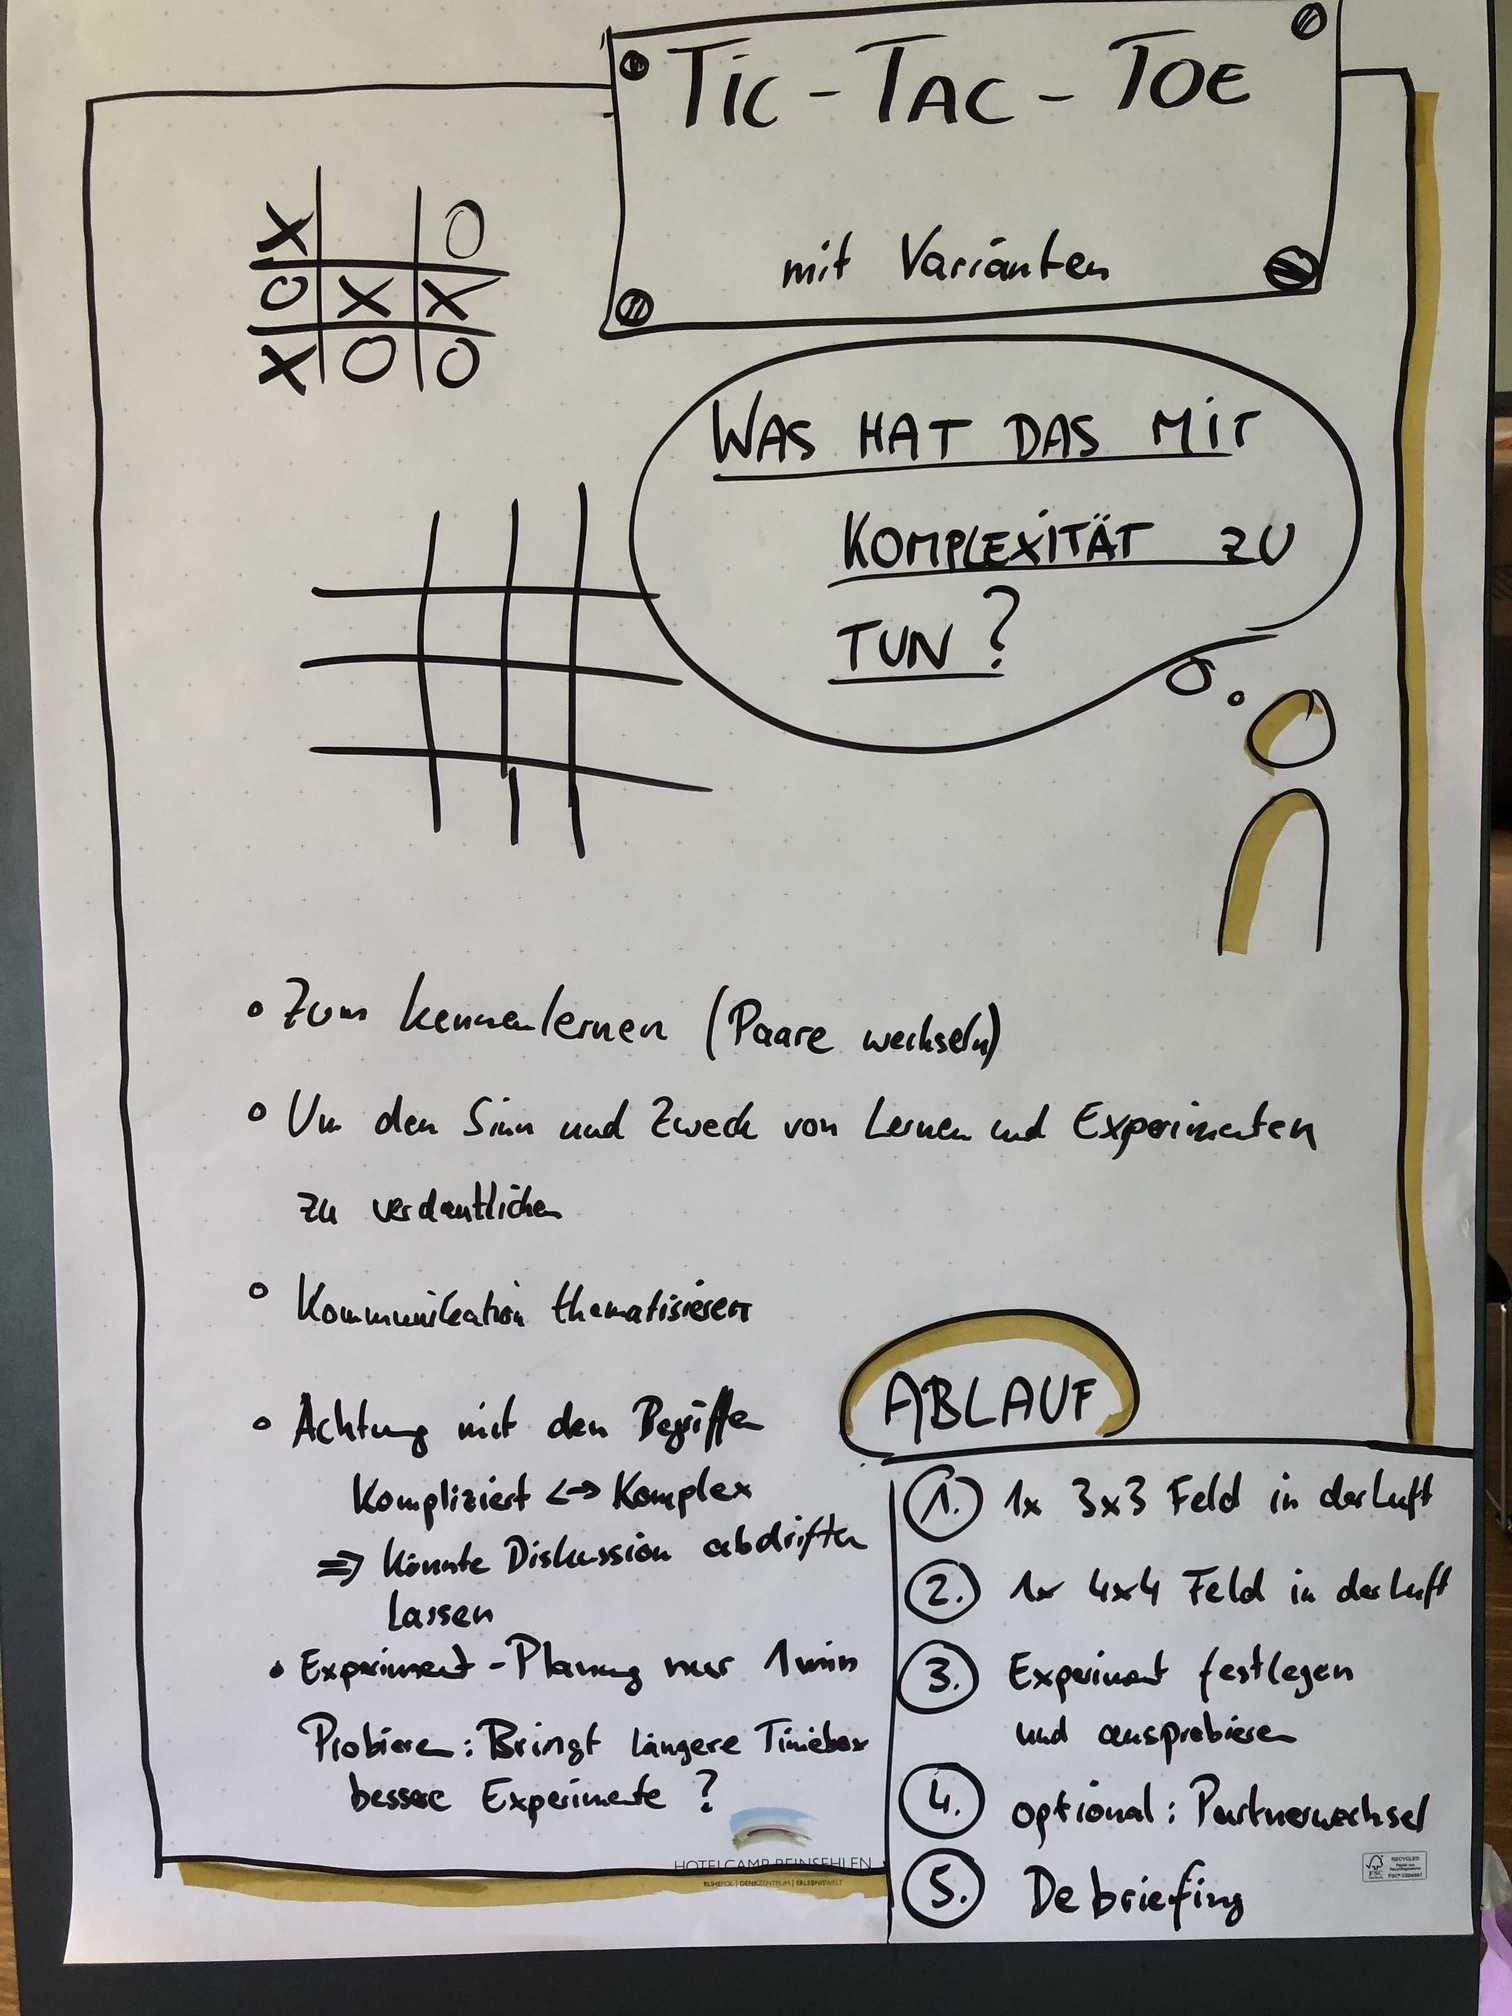 TIC - TAC - TOE
mit Varianten
X O
O X X
X O O
WAS HAT DAS MIT
KOMPLEXITÄT ZU
TUN ?
Zum kennenlernen (Paare wechseln)
Um den Sinn und Zweck von Lernen und Experimenten
zu verdeutlichen
Kommunikation thematisieren
Achtung mit den Begriffen
Kompliziert <-> Komplex
=> Könnte Diskussion abdriften
lassen
Experiment - Planung nur 1 min
Probieren: Bringt längere Timebox
bessere Experimente ?
HOTELCAMP REINSEHLEN
RUHEPOL | DENKZENTRUM | ERLEBNISWELT
ABLAUF
1. 1x 3x3 Feld in der Luft
2. 1x 4x4 Feld in der Luft
3. Experiment festlegen
und ausprobieren
4. optional: Partnerwechsel
5. Debriefing
FSC
RECYCLED